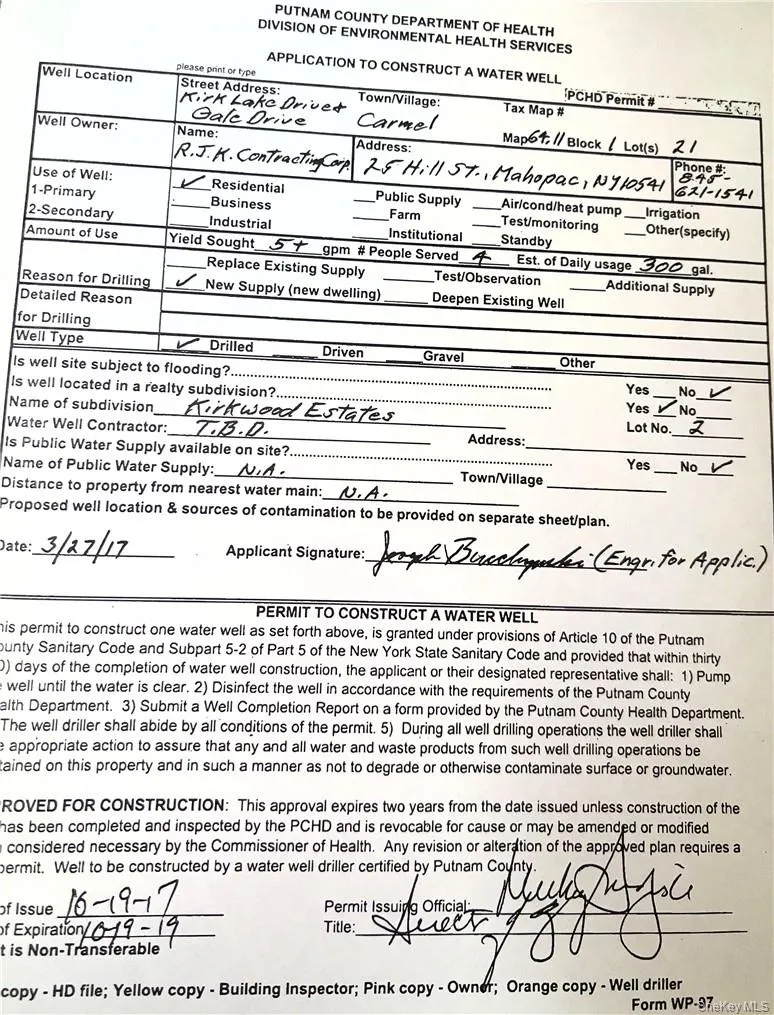 PUTNAM COUNTY DEPARTMENT OF HEALTH
DIVISION OF ENVIRONMENTAL HEALTH SERVICES
APPLICATION TO CONSTRUCT A WATER WELL
please print or type
PCHD Permit #
Well Location Street Address: Kirk Lake Drive & Gale Drive Town/Village: Carmel Tax Map # Map 64.11 Block 1 Lot(s) 21
Well Owner: Name: R.J.K. Contracting Corp. Address: 25 Hill St., Mahopac, NY 10541 Phone #: 845-621-1541
Use of Well: ✓ Residential Public Supply Air/cond/heat pump Irrigation
1-Primary Business Farm Test/monitoring Other(specify)
2-Secondary Industrial Institutional Standby
Amount of Use Yield Sought 5+ gpm # People Served 4 Est. of Daily usage 300 gal.
Reason for Drilling Replace Existing Supply Test/Observation Additional Supply
✓ New Supply (new dwelling) Deepen Existing Well
Detailed Reason
for Drilling
Well Type ✓ Drilled Driven Gravel Other
Is well site subject to flooding?.......... Yes No ✓
Is well located in a realty subdivision?.......... Yes ✓ No
Name of subdivision Kirkwood Estates Lot No. 2
Water Well Contractor: T.B.D. Address:
Is Public Water Supply available on site?.......... Yes No ✓
Name of Public Water Supply: N.A. Town/Village
Distance to property from nearest water main: N.A.
Proposed well location & sources of contamination to be provided on separate sheet/plan.
Date: 3/27/17 Applicant Signature: Joseph (Engr. for Applic.)
PERMIT TO CONSTRUCT A WATER WELL
his permit to construct one water well as set forth above, is granted under provisions of Article 10 of the Putnam
ounty Sanitary Code and Subpart 5-2 of Part 5 of the New York State Sanitary Code and provided that within thirty
0) days of the completion of water well construction, the applicant or their designated representative shall: 1) Pump
e well until the water is clear. 2) Disinfect the well in accordance with the requirements of the Putnam County
alth Department. 3) Submit a Well Completion Report on a form provided by the Putnam County Health Department.
The well driller shall abide by all conditions of the permit. 5) During all well drilling operations the well driller shall
e appropriate action to assure that any and all water and waste products from such well drilling operations be
tained on this property and in such a manner as not to degrade or otherwise contaminate surface or groundwater.
ROVED FOR CONSTRUCTION: This approval expires two years from the date issued unless construction of the
has been completed and inspected by the PCHD and is revocable for cause or may be amended or modified
considered necessary by the Commissioner of Health. Any revision or alteration of the approved plan requires a
permit. Well to be constructed by a water well driller certified by Putnam County.
of Issue 10-19-17 Permit Issuing Official:
of Expiration 10-19-19 Title:
t is Non-Transferable
copy - HD file; Yellow copy - Building Inspector; Pink copy - Owner; Orange copy - Well driller
Form WP-97
OneKeyMLS